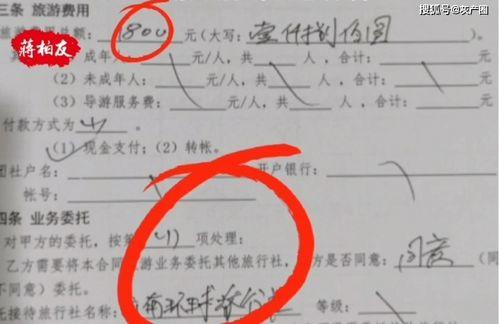 搜狐号@灰产圈
三条 旅游费用
蒋柏友
旅游费用总额:1800元(大写:壹仟捌佰圆
成年人 元/人,共 人,合计: 元
(2)未成年人: 元/人,共 人,合计: 元
(3)导游服务费: 元/人,共 人,合计: 元
付款方式为(1)
(1)现金支付;(2)转帐。
团社户名: 开户银行:
帐号:
四条 业务委托
对甲方的委托,按第(1)项处理:
乙方需要将本合同旅游业务委托其他旅行社,方是否同意:同意(同
不同意)委托。
托接待旅行社名称: 环球 等级: